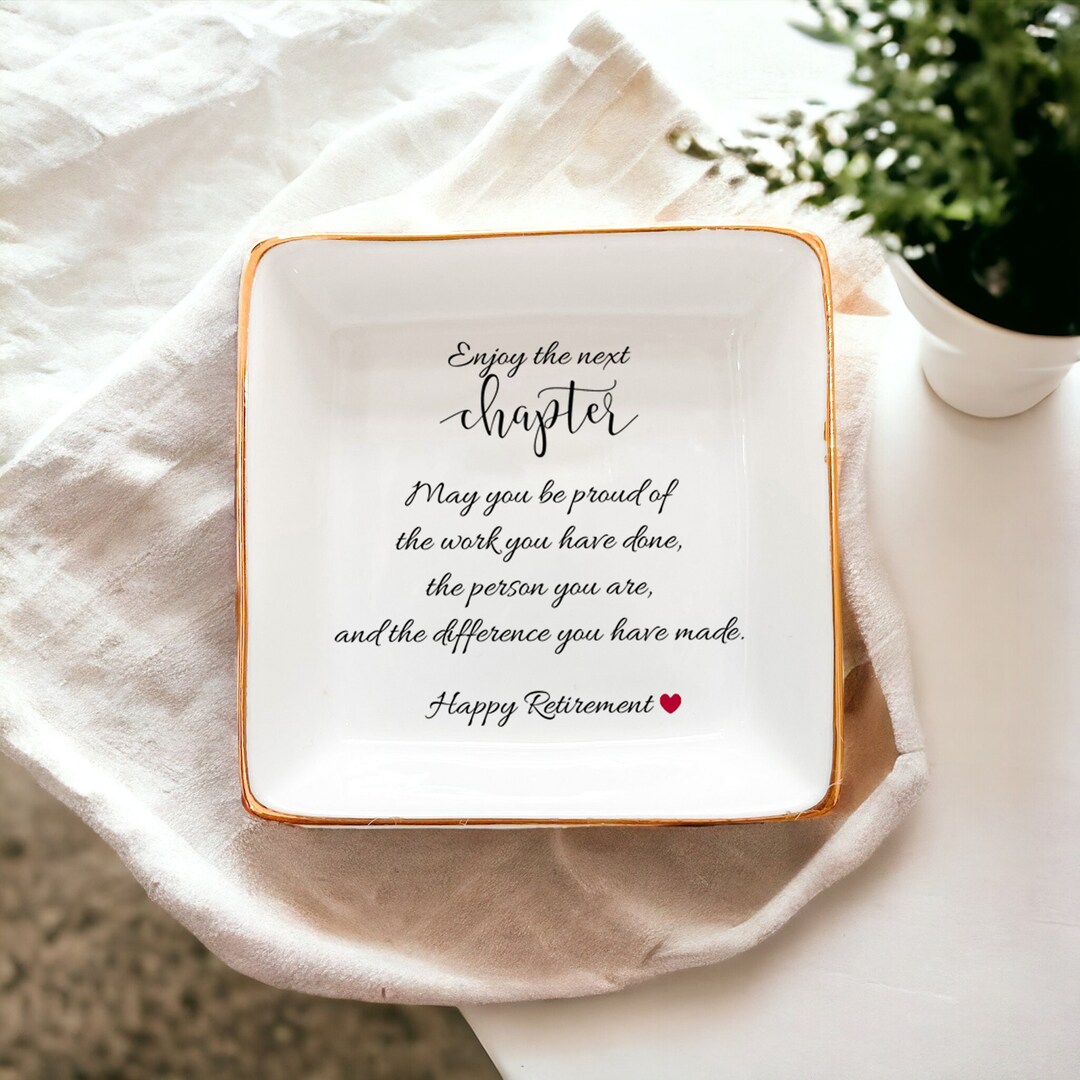 Enjoy the next
chapter
May you be proud of
the work you have done,
the person you are,
and the difference you have made.
Happy Retirement ❤